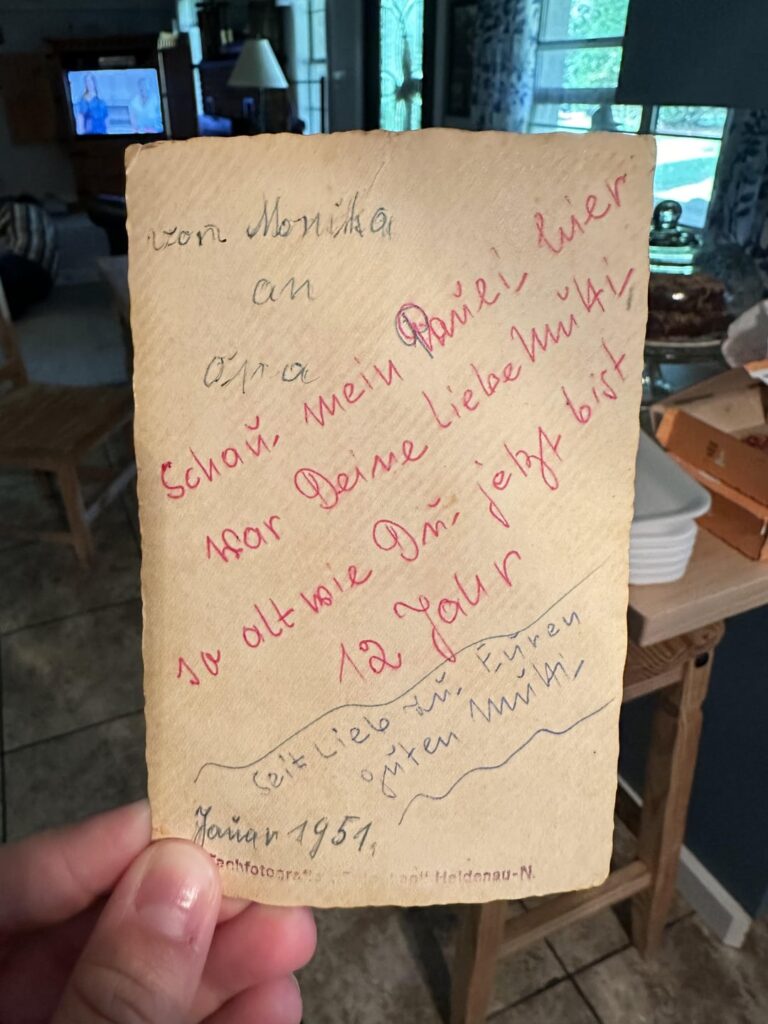 von Monika
an
Opa
Schau, mein Pauli hier
war Deine liebe Mutti
so alt wie Du jetzt bist
12 Jahr
Seit lieb zu Euren
guten Mutti
Januar 1951.
Heidenau-N.